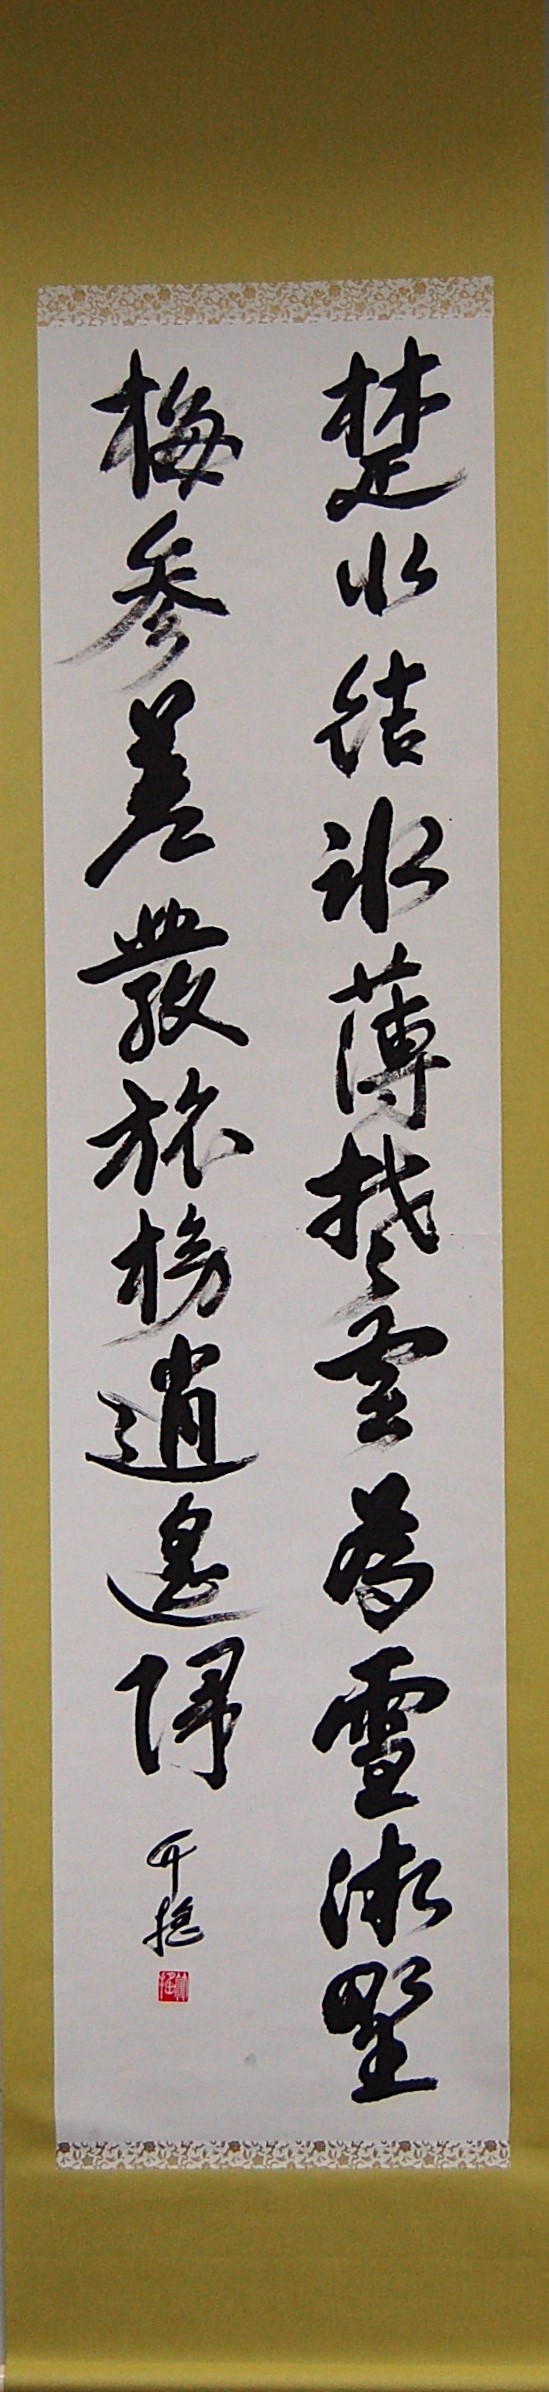 楚水結冰薄楚雲為雪微野
梅參差發旅榜逍遙歸